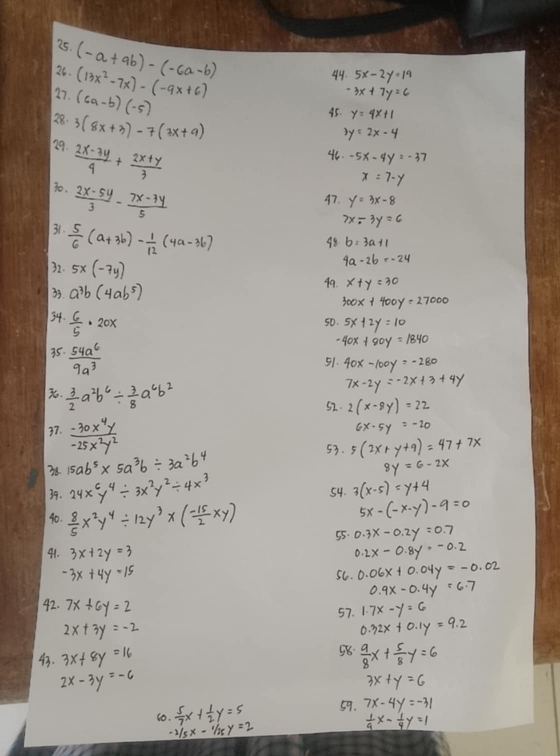 25. (-a + 9b) - (-6a - b)
26. (13x² - 7x) - (-9x + 6)
27. (6a - b) (-5)
28. 3(8x + 3) - 7(3x + 9)
29. (2x - 3y)/4 + (2x + y)/3
30. (2x - 5y)/3 - (7x - 3y)/5
31. 5/6 (a + 3b) - 1/12 (4a - 3b)
32. 5x (-7y)
33. a³b (4ab⁵)
34. 6/5 • 20x
35. 54a⁶/9a³
36. 3/2 a²b⁶ ÷ 3/8 a⁶b²
37. -30x⁴y/-25x²y²
38. 15ab⁵ × 5a³b ÷ 3a²b⁴
39. 24x⁶y⁴ ÷ 3x²y² ÷ 4x³
40. 8/5 x²y⁴ ÷ 12y³ × (-15/2 xy)
41. 3x + 2y = 3
-3x + 4y = 15
42. 7x + 6y = 2
2x + 3y = -2
43. 3x + 8y = 16
2x - 3y = -6
44. 5x - 2y = 19
-3x + 7y = 6
45. y = 4x + 1
3y = 2x - 4
46. -5x - 4y = -37
x = 7 - y
47. y = 3x - 8
7x - 3y = 6
48. b = 3a + 1
4a - 2b = -24
49. x + y = 30
300x + 400y = 27000
50. 5x + 2y = 10
-40x + 90y = 1840
51. 40x - 100y = -280
7x - 2y = -2x + 3 + 4y
52. 2(x - 8y) = 22
6x - 5y = -20
53. 5(2x + y + 9) = 47 + 7x
8y = 6 - 2x
54. 3(x - 5) = y + 4
5x - (-x - y) - 9 = 0
55. 0.3x - 0.2y = 0.7
0.2x - 0.8y = -0.2
56. 0.06x + 0.04y = -0.02
0.9x - 0.4y = 6.7
57. 1.7x - y = 6
0.32x + 0.1y = 9.2
58. 9/8 x + 5/8 y = 6
3x + y = 6
59. 7x - 4y = -31
1/9 x - 1/9 y = 1
60. 5/7 x + 1/2 y = 5
-2/5 x - 1/25 y = 2